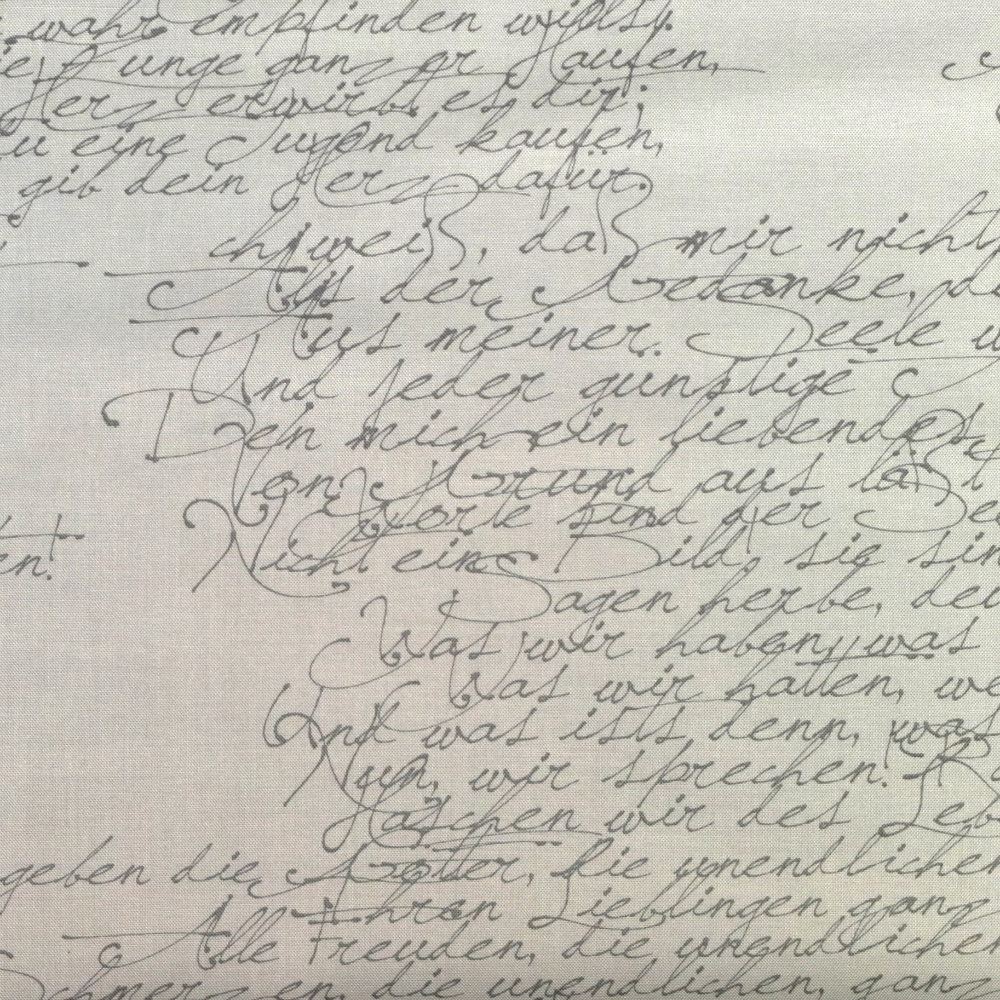 wahr empfinden willst.
Zunge ganzer Haufen,
Herz erwirbt es dir;
eine Jugend kaufen,
gib dein Herz dafür.
ch weiß, daß mir nicht
Als der Gedanke, d
Aus meiner Seele w
Und jeder gunstige
Den mich ein liebendes
Von Grund aus läßt
Worte sind der See
en!
Nicht ein Bild, sie sin
Sagen herbe, deu
Was wir haben, was
Was wir hatten, w
Und was ists denn, was
Nun, wir sprechen! R
Haschen wir des Leb
geben die Götter, die unendlichen
Ihren Lieblingen ganz
Alle Freuden, die unendlichen
Schmerzen, die unendlichen, ganz